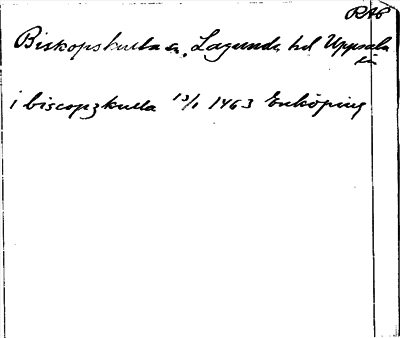 RAP
Biskopskulla sn, Lagunda hd Uppsala
län
i biscopzkulla 13/1 1463 Enköping